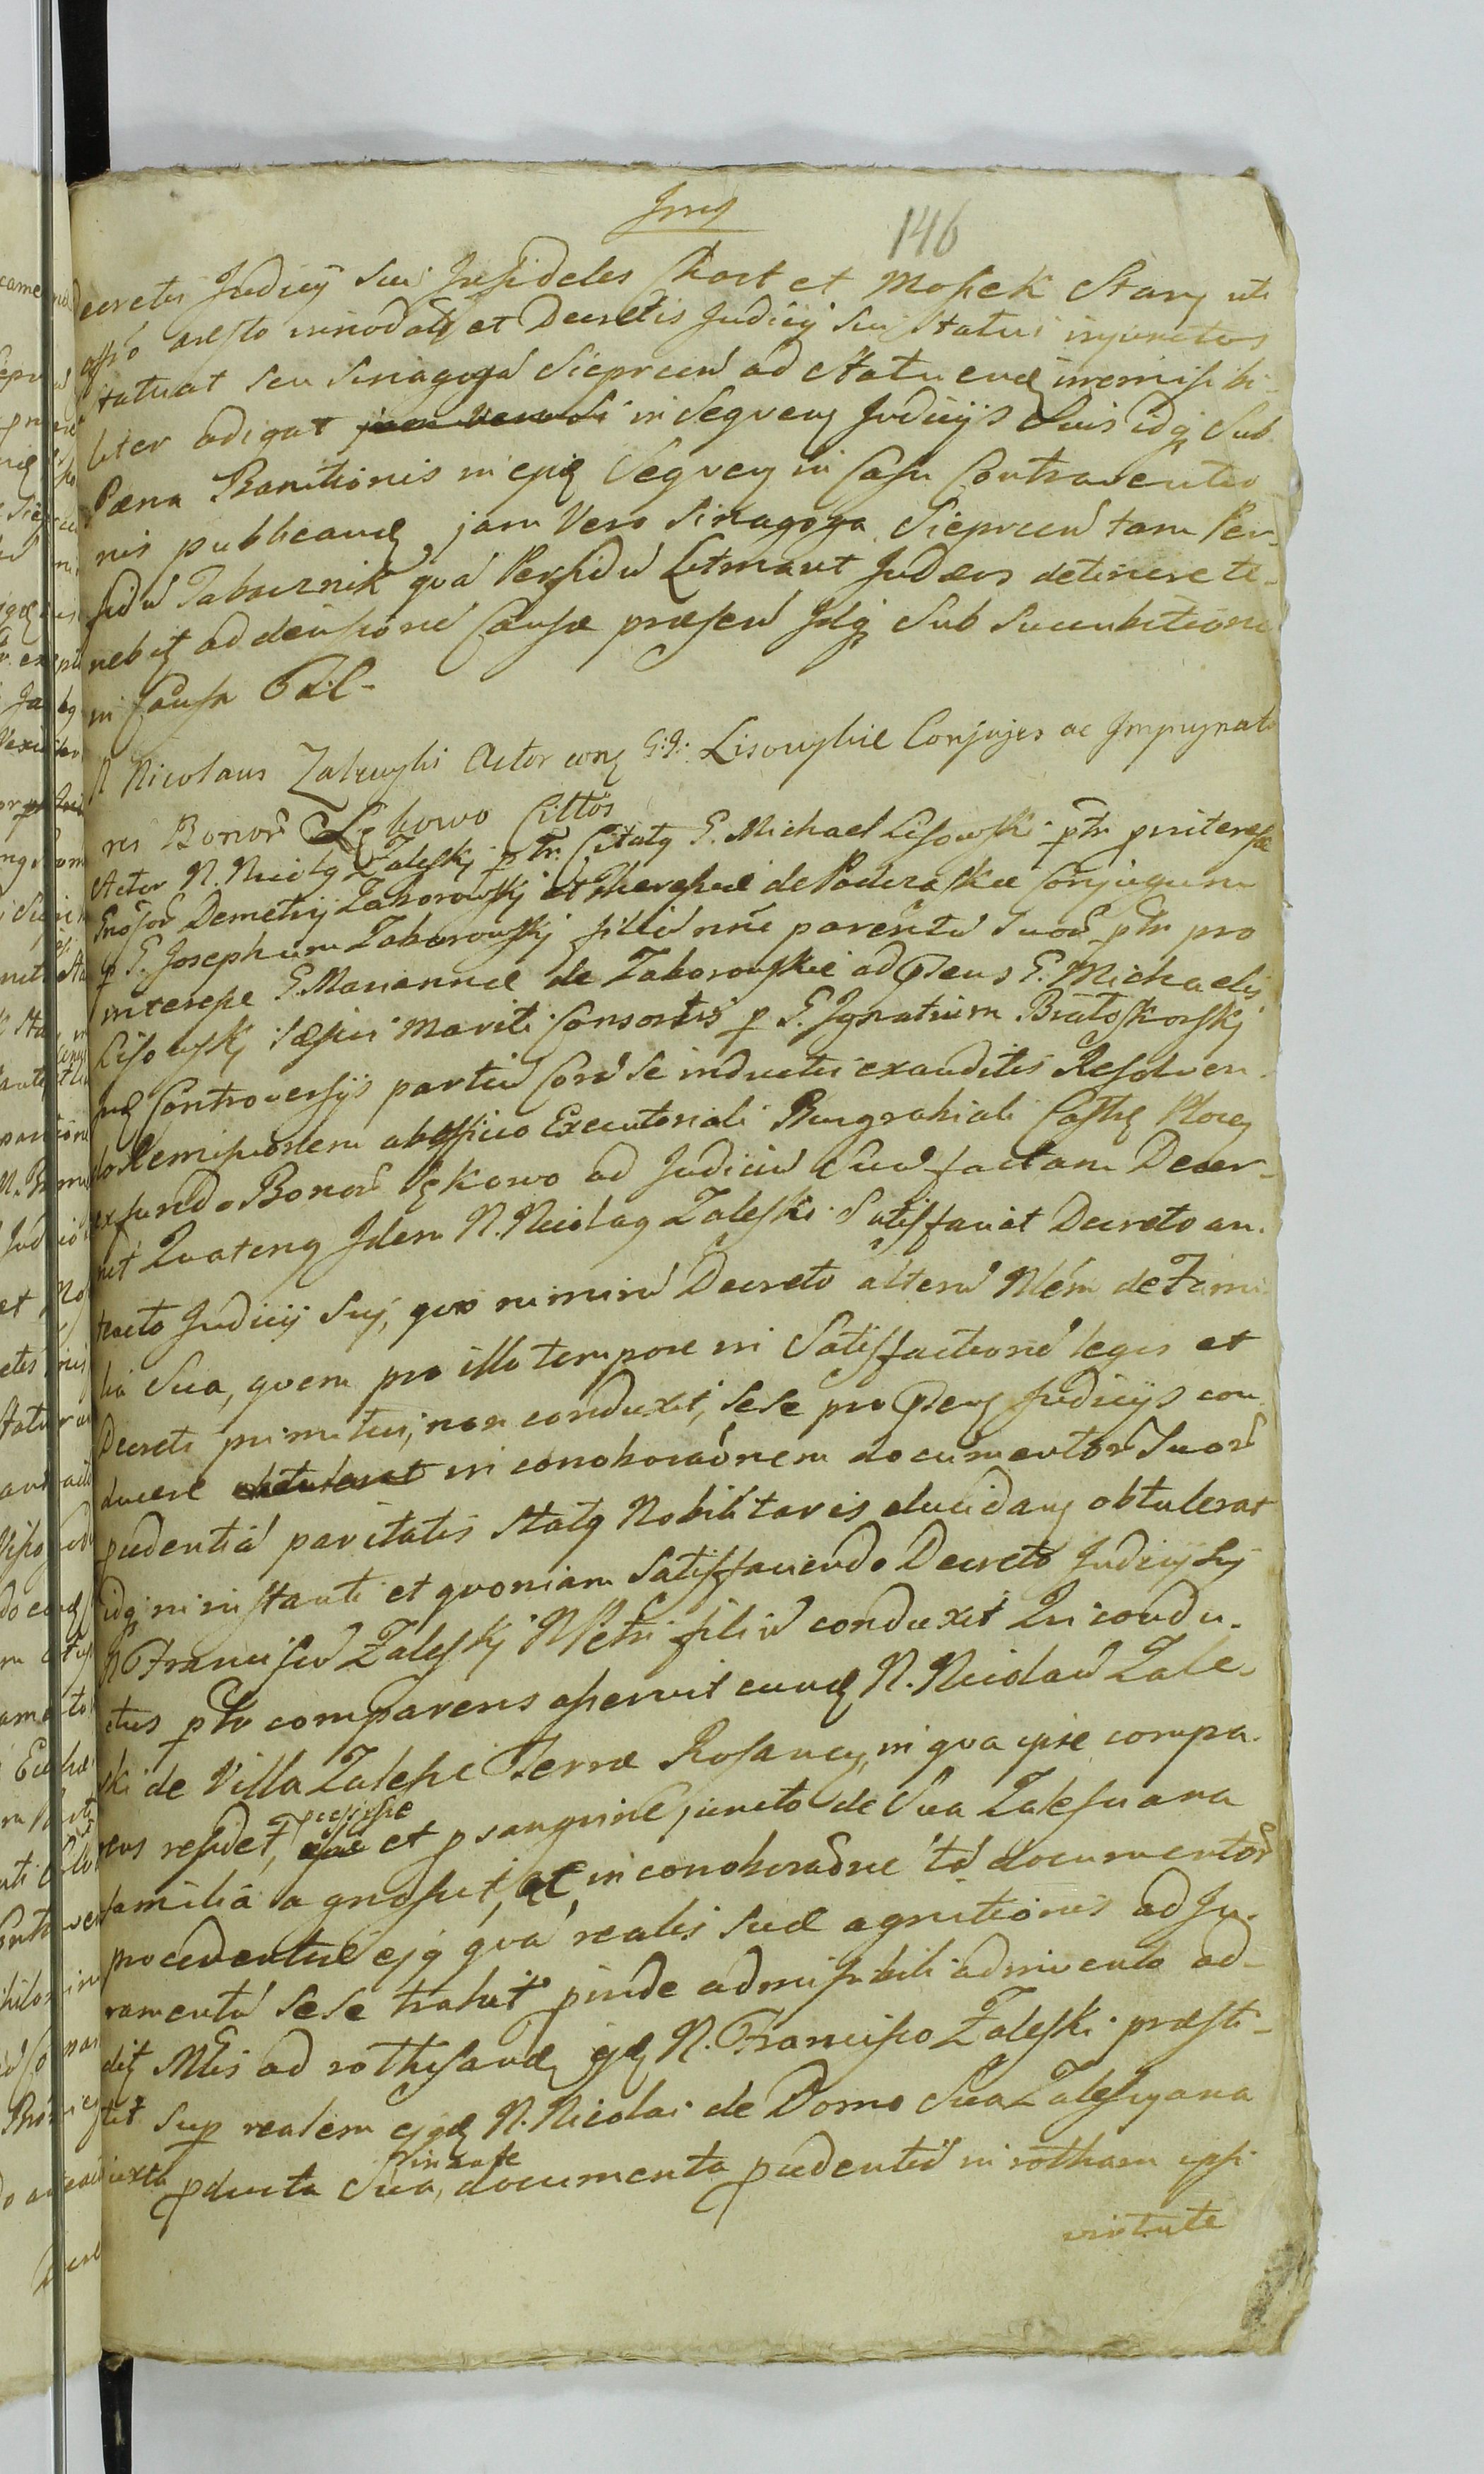 146
Decretis Judicij sui Infideles Chost et Moszek Stary uti
offo aresto innodatq et Decretis Judicij sui statui injunctos
statuat seu Sinagoga Siepreen ad statuend irremisibi-
liter adigat jam vero in sequen Judicijs suis idq sub
Pæna Banitionis in ejus sequen in Casu Contraventio-
nis publicand, jam vero Sinagoga Siepreen tam Per-
fidu Tabacznik qua Perfidu Litmant Judæos detinere te-
nebit ad decisione Causæ præsen Idq sub succubitione
in Causa
N Nicolaus Zalewski Actor con G:G: Lisowskie Conjuges ac Impugnato
res Bonor Łękowo Cittos
Actor N. Nicolq Zaleskj ptr. Citatq G. Michael Lisowski ptr pinteresse
Gnosor Demetrij Zaborowskj et Theresiæ de Podczaskie Conjugum
p G. Josephum Zaborowskj filiu nne parentu suor ptr pro
interesse G. Mariannæ de Zaborowskie ad psens G. Michaelis
Lisowskj sæpius Mariti Consortis p G. Ignatium Bratoskorskj
Jud Controversijs partiu Cora se inductis exauditis Resolven-
do Remissionem ab Officio Executoriali Burgrabiali Castri Plocen
ex fundo Bonor Łękowo ad Judiciu suu factam Decer-
nit Quatenq Idem N. Nicolaq Zaleski satisfaciat Decreto an-
teacto Judicij sui, quo nimiru Decreto alteru Mem de Fami-
lia sua, quem pro illo tempore in satisfactione legis et
Decreti primitivi, non conduxit, sese pro psens Judicijs con-
ducere in conoboraonem documentor suor
pcedentia paritatis statq Nobilitaris elucidan obtulerat
idq in instanti et quoniam satisfaciendo Decreto Judicij sui
N Franciscu Zaleskj N Petri filiu conduxit Qui condu-
ctus ptr comparens asseruit eund N. Nicolau Zale-
ski de Villa Zalesie Terræ Rosancen, in qua ipse compa-
rens residet, pcessisse et p sanguine juncto de sua Zalesciana
familia agnoscit, et in conoboraone to documentor
procedentiæ ejq qua realis suæ agnitionis ad Ju-
ramentu sese trahit pinde admissibili adinvento ad-
dit Mtis ad rothisand N. Francisco Zaleski præsti-
tit sup realem ejqd N. Nicolai de Domo sua Zalesciyana
juxta pducta sua, in hac pte documenta pcedentiu in rotham ipsi
virtute